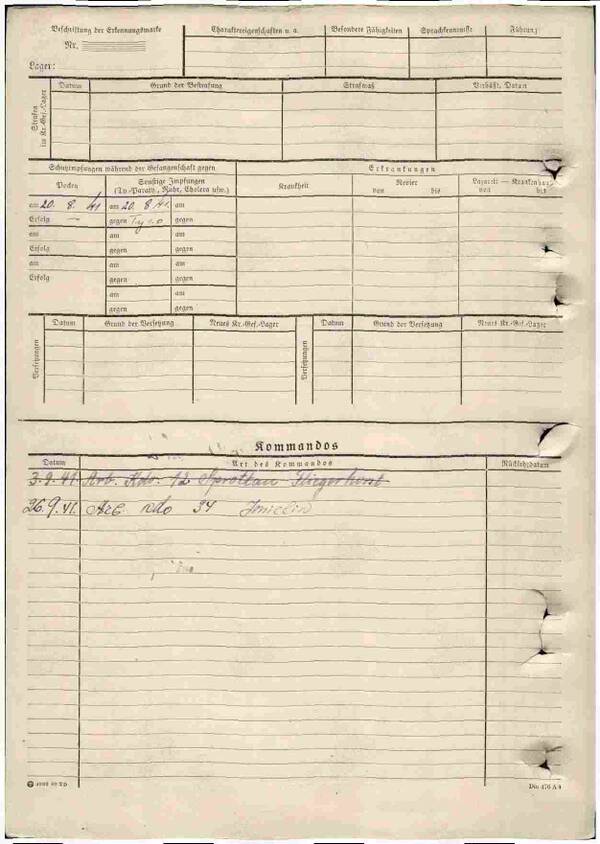 Beschriftung der Erkennungsmarke
Nr.
Lager:
Charaktereigenschaften u. a.
Besondere Fähigkeiten
Sprachkenntnisse
Führung
Strafen im Kr.-Gef.-Lager
Datum
Grund der Bestrafung
Strafmaß
Verbüßt, Datum
Schutzimpfungen während der Gefangenschaft gegen
Erkrankungen
Pocken
Sonstige Impfungen
(Ty.-Paraty., Ruhr, Cholera usw.)
Krankheit
Revier
von bis
Lazarett — Krankenhaus
von bis
am 20. 8. 41 am 20. 8. 41. am
Erfolg — gegen gegen
am am am
Erfolg gegen gegen
am am am
Erfolg gegen gegen
am am
gegen gegen
Versetzungen
Datum
Grund der Versetzung
Neues Kr.-Gef.-Lager
Versetzungen
Datum
Grund der Versetzung
Neues Kr.-Gef.-Lager
Kommandos
Datum
Art des Kommandos
Rückkehrdatum
3.9.41. Arb. Kdo. 12 Sprottau Fliegerhorst
26.9.41. 34
Din 476 A 4